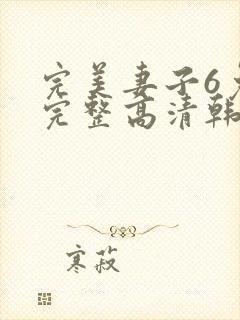 完美妻子6
完整高清韩
寒菽